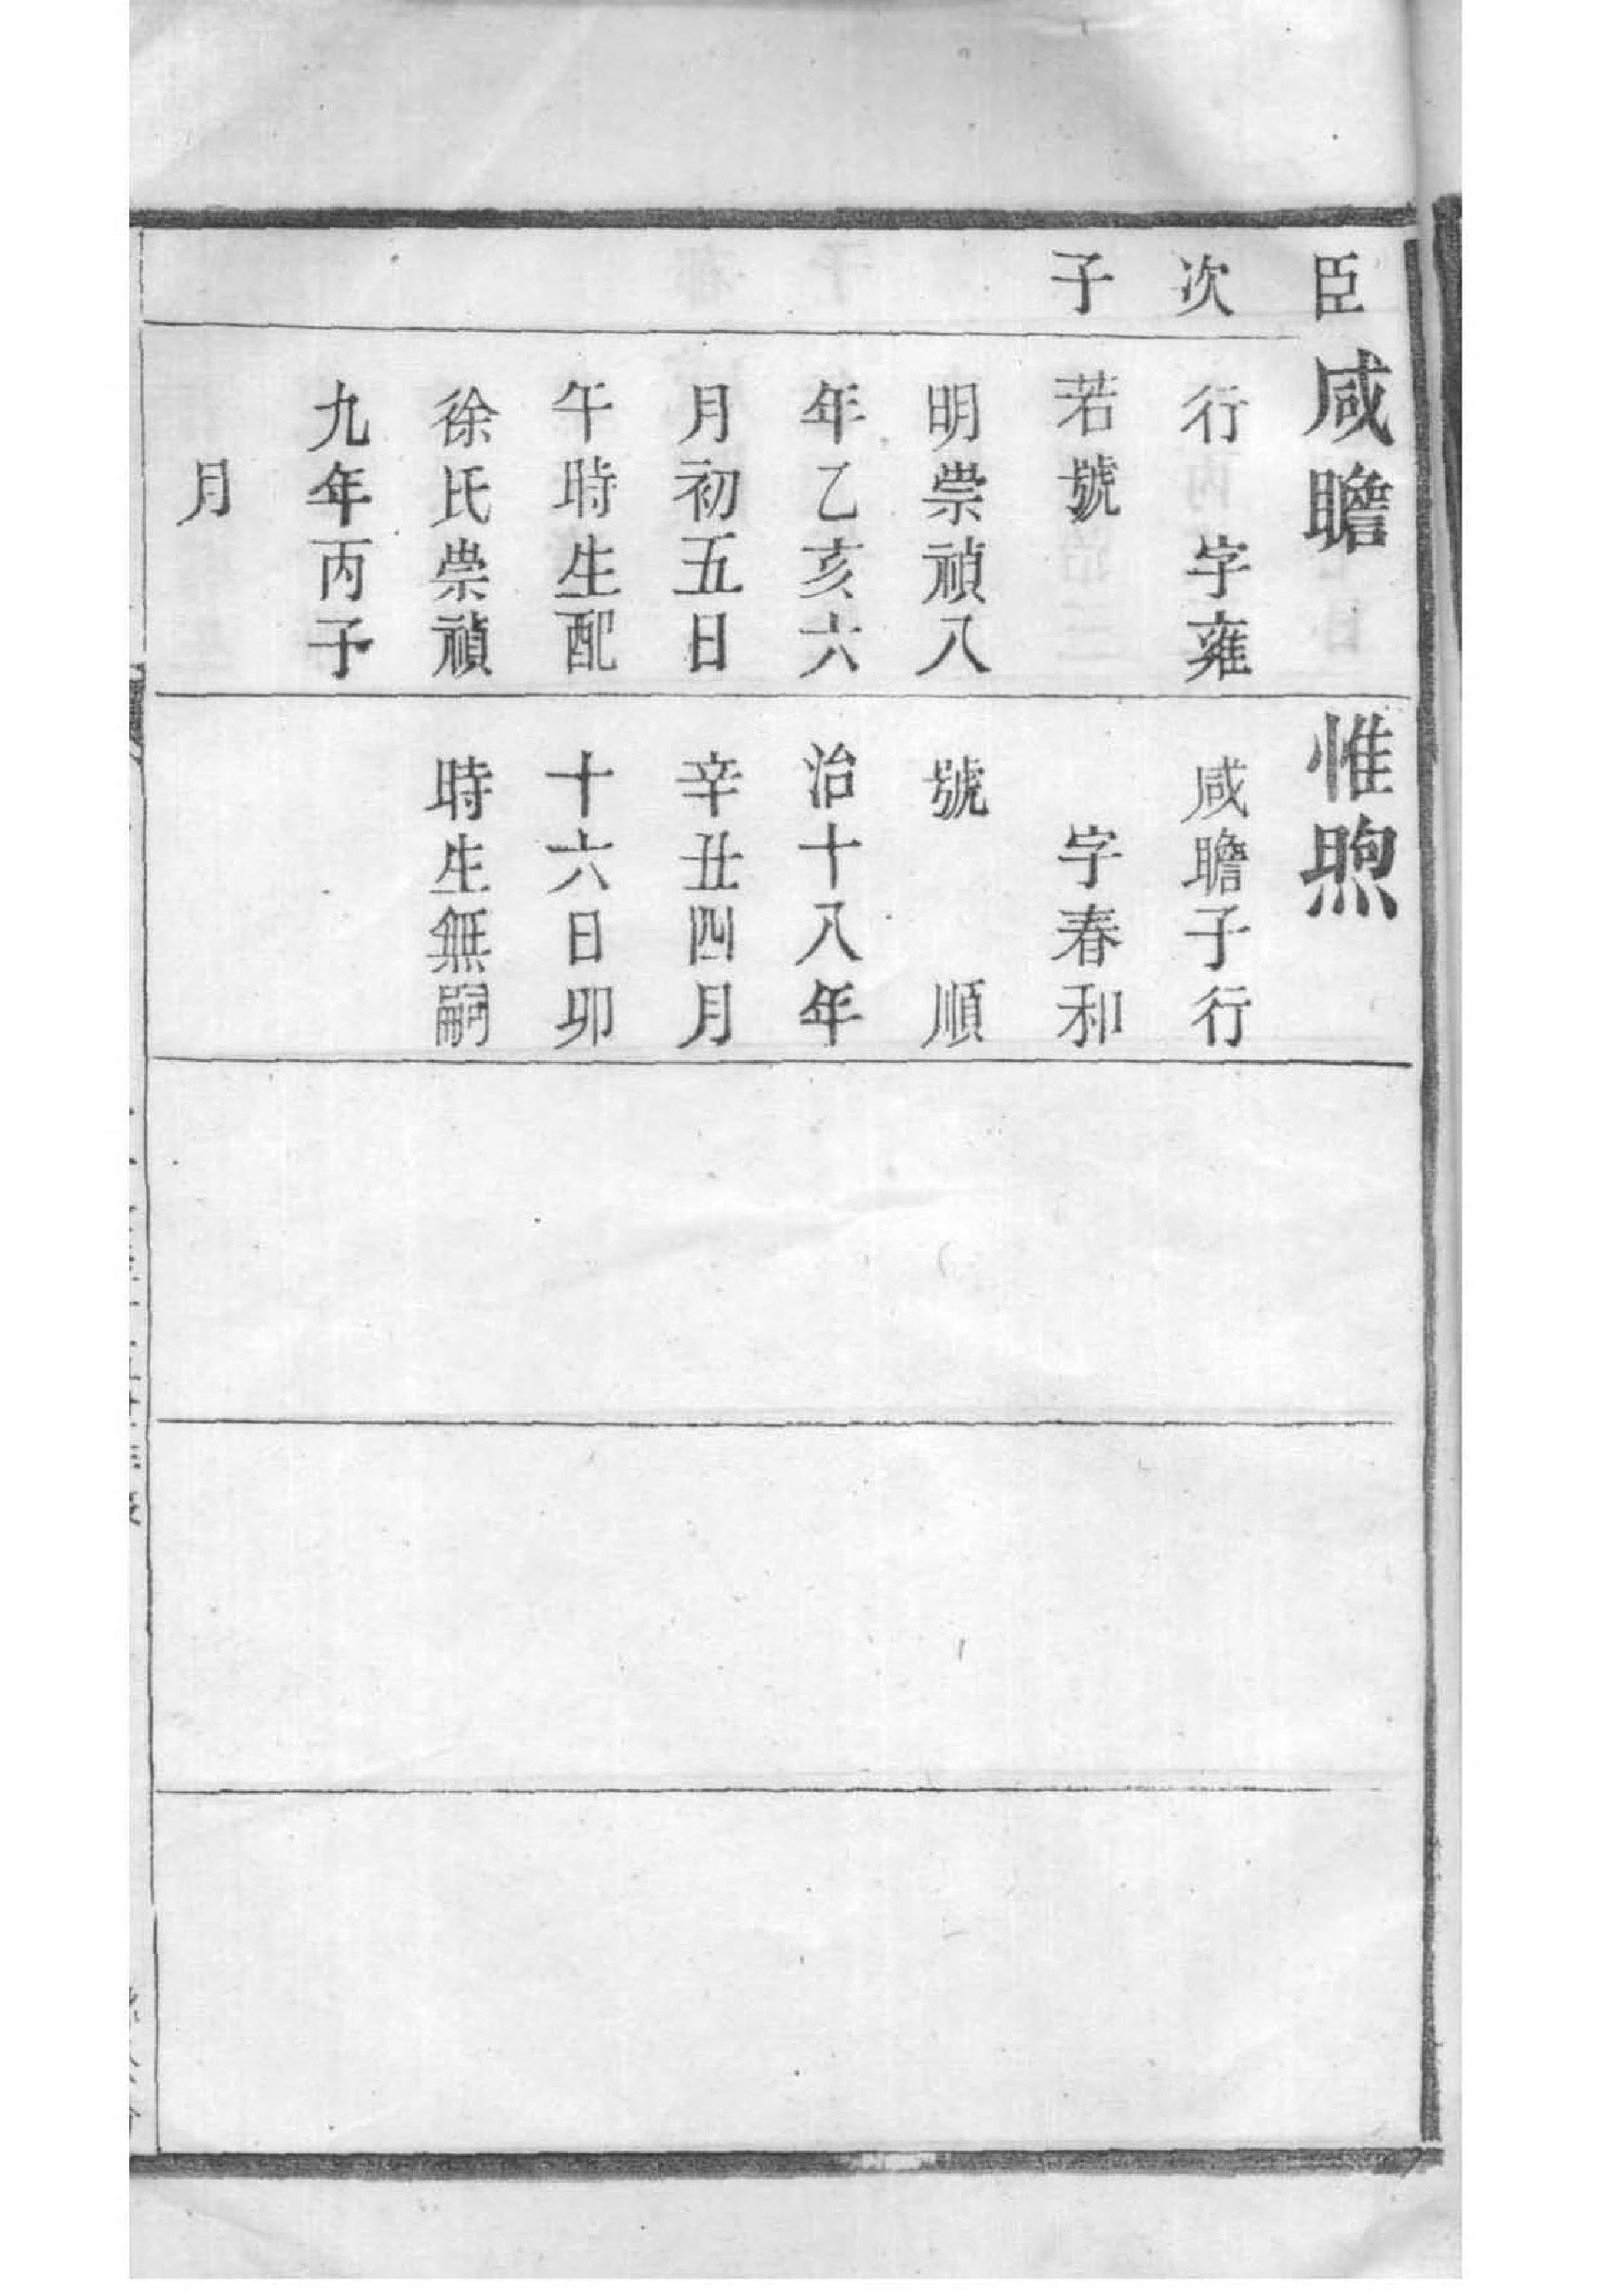 臣
次
子
咸瞻
行　字雍
若號
明崇禎八
年乙亥六
月初五日
午時生配
徐氏崇禎
九年丙子
月
惟煦
咸瞻子行
字春和
號　　順
治十八年
辛丑四月
十六日卯
時生無嗣